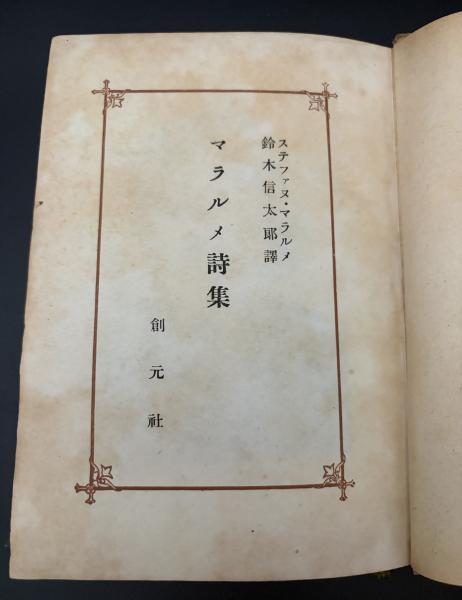 ステファヌ・マラルメ
鈴木信太郎譯
マラルメ詩集
創元社